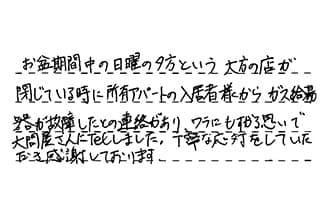 お盆期間中の日曜の夕方という大方の店が
閉じている時に所有アパートの入居者様からガス給湯
器が故障したとの連絡があり、ワラにもすがる思いで
大問屋さんにTELしました。丁寧な応対をしていた
だき感謝しております